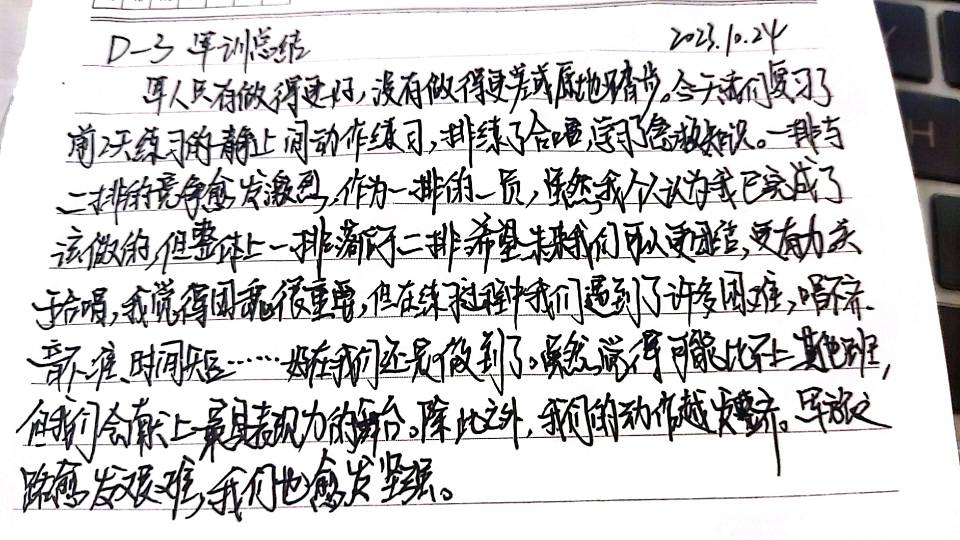 D-3 军训总结 2023.10.24
军人只有做得更好，没有做得更差或原地踏步。今天我们复习了
前2天练习的静止间动作练习，排练了合唱，学习了急救知识。一排与
二排的竞争愈发激烈，作为一排的一员，虽然我个人认为我已完成了
该做的，但整体上一排落后于二排，希望未来我们可以更团结，更有力。关
于合唱，我觉得团魂很重要，但在练习过程中我们遇到了许多困难，唱不齐、
音不准、时间短……好在我们还是做到了。虽然觉得可能比不上其他班，
但我们会献上最具表现力的舞台。除此之外，我们的动作越发整齐。军旅之
路愈发艰难，我们也愈发坚强。